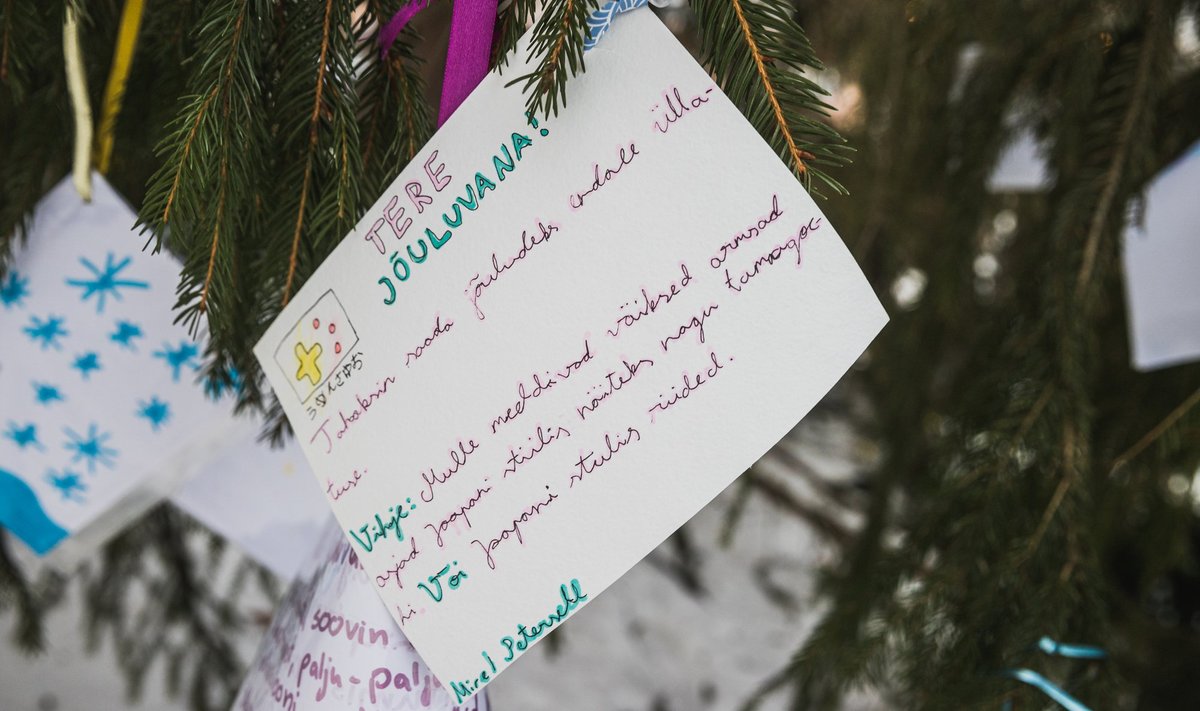 TERE
JÕULUVANA!
Tahaksin saada jõuludeks endale ülla-
tuse.
Vihje: Mulle meddivad väiksed armsad
asjad Jaapani stiilis näiteks nagu tamagoc-
hi. Või Jaapani stiilis riided.
Mirel Petersell
soovin
palju-palj